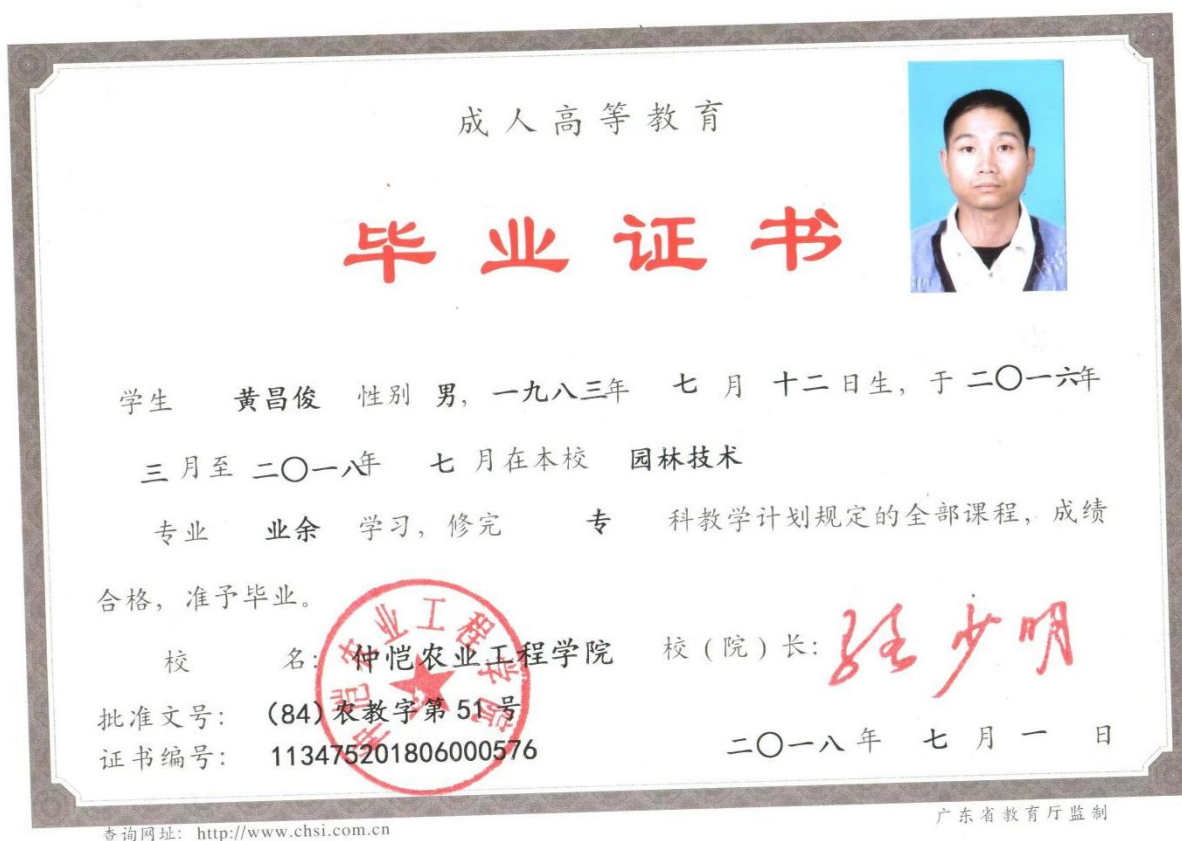 成人高等教育
毕业证书
学生 黄昌俊 性别 男，一九八三年 七 月 十二 日生，于 二〇一六年
三 月至 二〇一八年 七 月在本校 园林技术
专业 业余 学习，修完 专 科教学计划规定的全部课程，成绩
合格，准予毕业。
仲恺农业工程学院
校 名：仲恺农业工程学院 校（院）长：
批准文号：（84）农教字第 51 号
证书编号：113475201806000576 二〇一八年 七 月 一 日
查询网址：http://www.chsi.com.cn 广东省教育厅监制